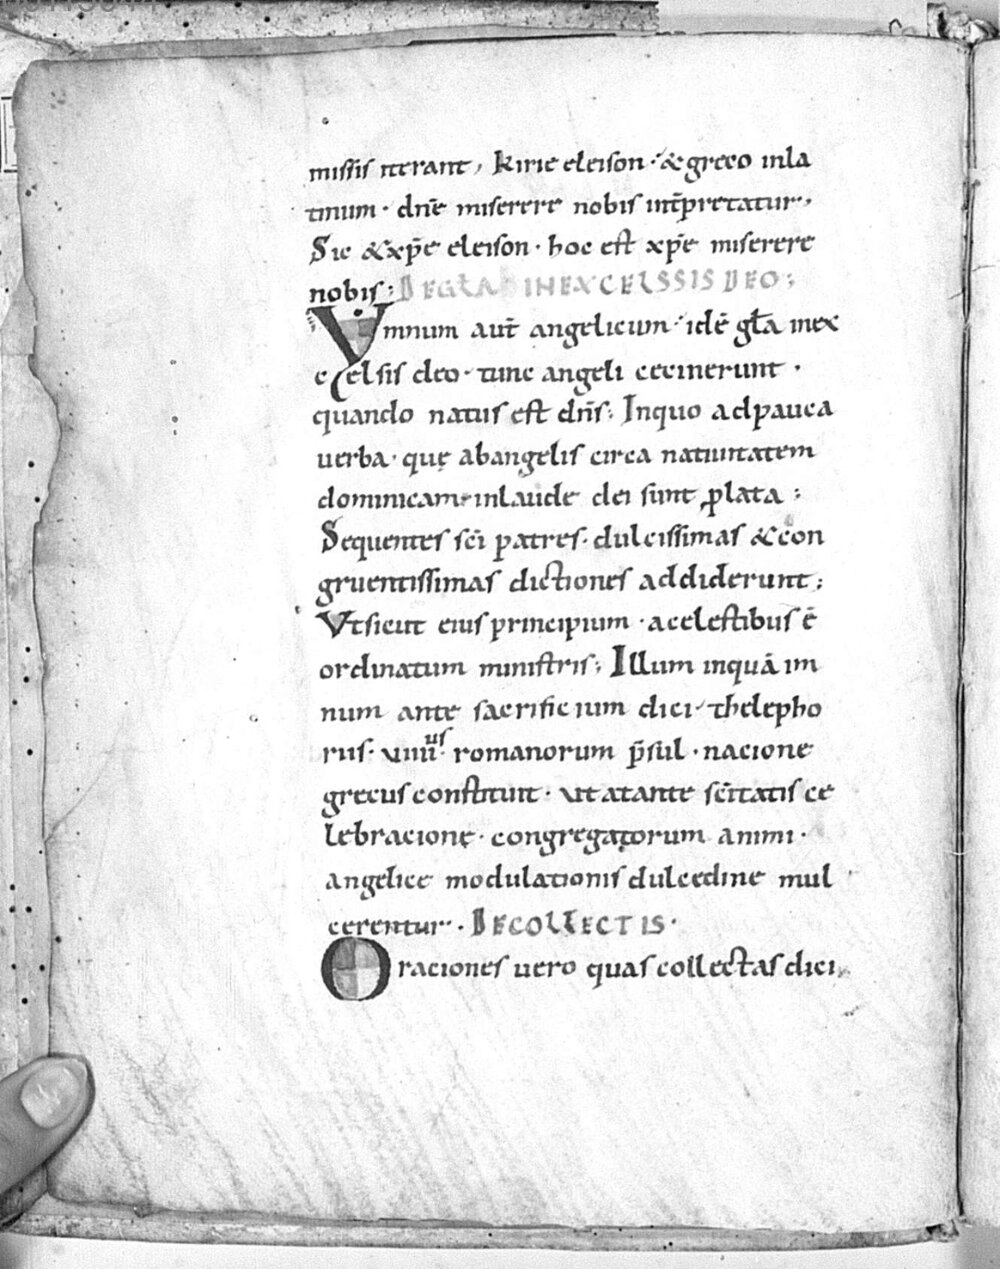 missis iterant, kirie eleison · & greco inla
tinum · dn̄e miserere nobis int̄pretatur,
Sic & xp̄e eleison · hoc est xp̄e miserere
nobis; DE GL̄A IN EXCELSSIS DEO;
Ymnum aut̄ angelicum · idē gl̄a inex
celsis deo · tunc angeli cecinerunt ·
quando natus est dn̄s; Inquo ad pauca
uerba · quę abangelis circa natiuitatem
dominicam · inlaude dei sunt ꝓlata ;
Sequentes sc̄i patres · dulcissimas & con
gruentissimas dictiones addiderunt;
Vt sicut eius principium · acelestibus ē
ordinatum ministris; Illum inquā im
num ante sacrificium dici · thelepho
rus · uiiiiᵘˢ· romanorum p̄sul · nacione
grecus constituit · ut atante sc̄itatis ce
lebracionę · congregatorum animi ·
angelice modulationis dulcedine mul
cerentur · DE COLLECTIS ·
Oraciones uero quas collectas dici